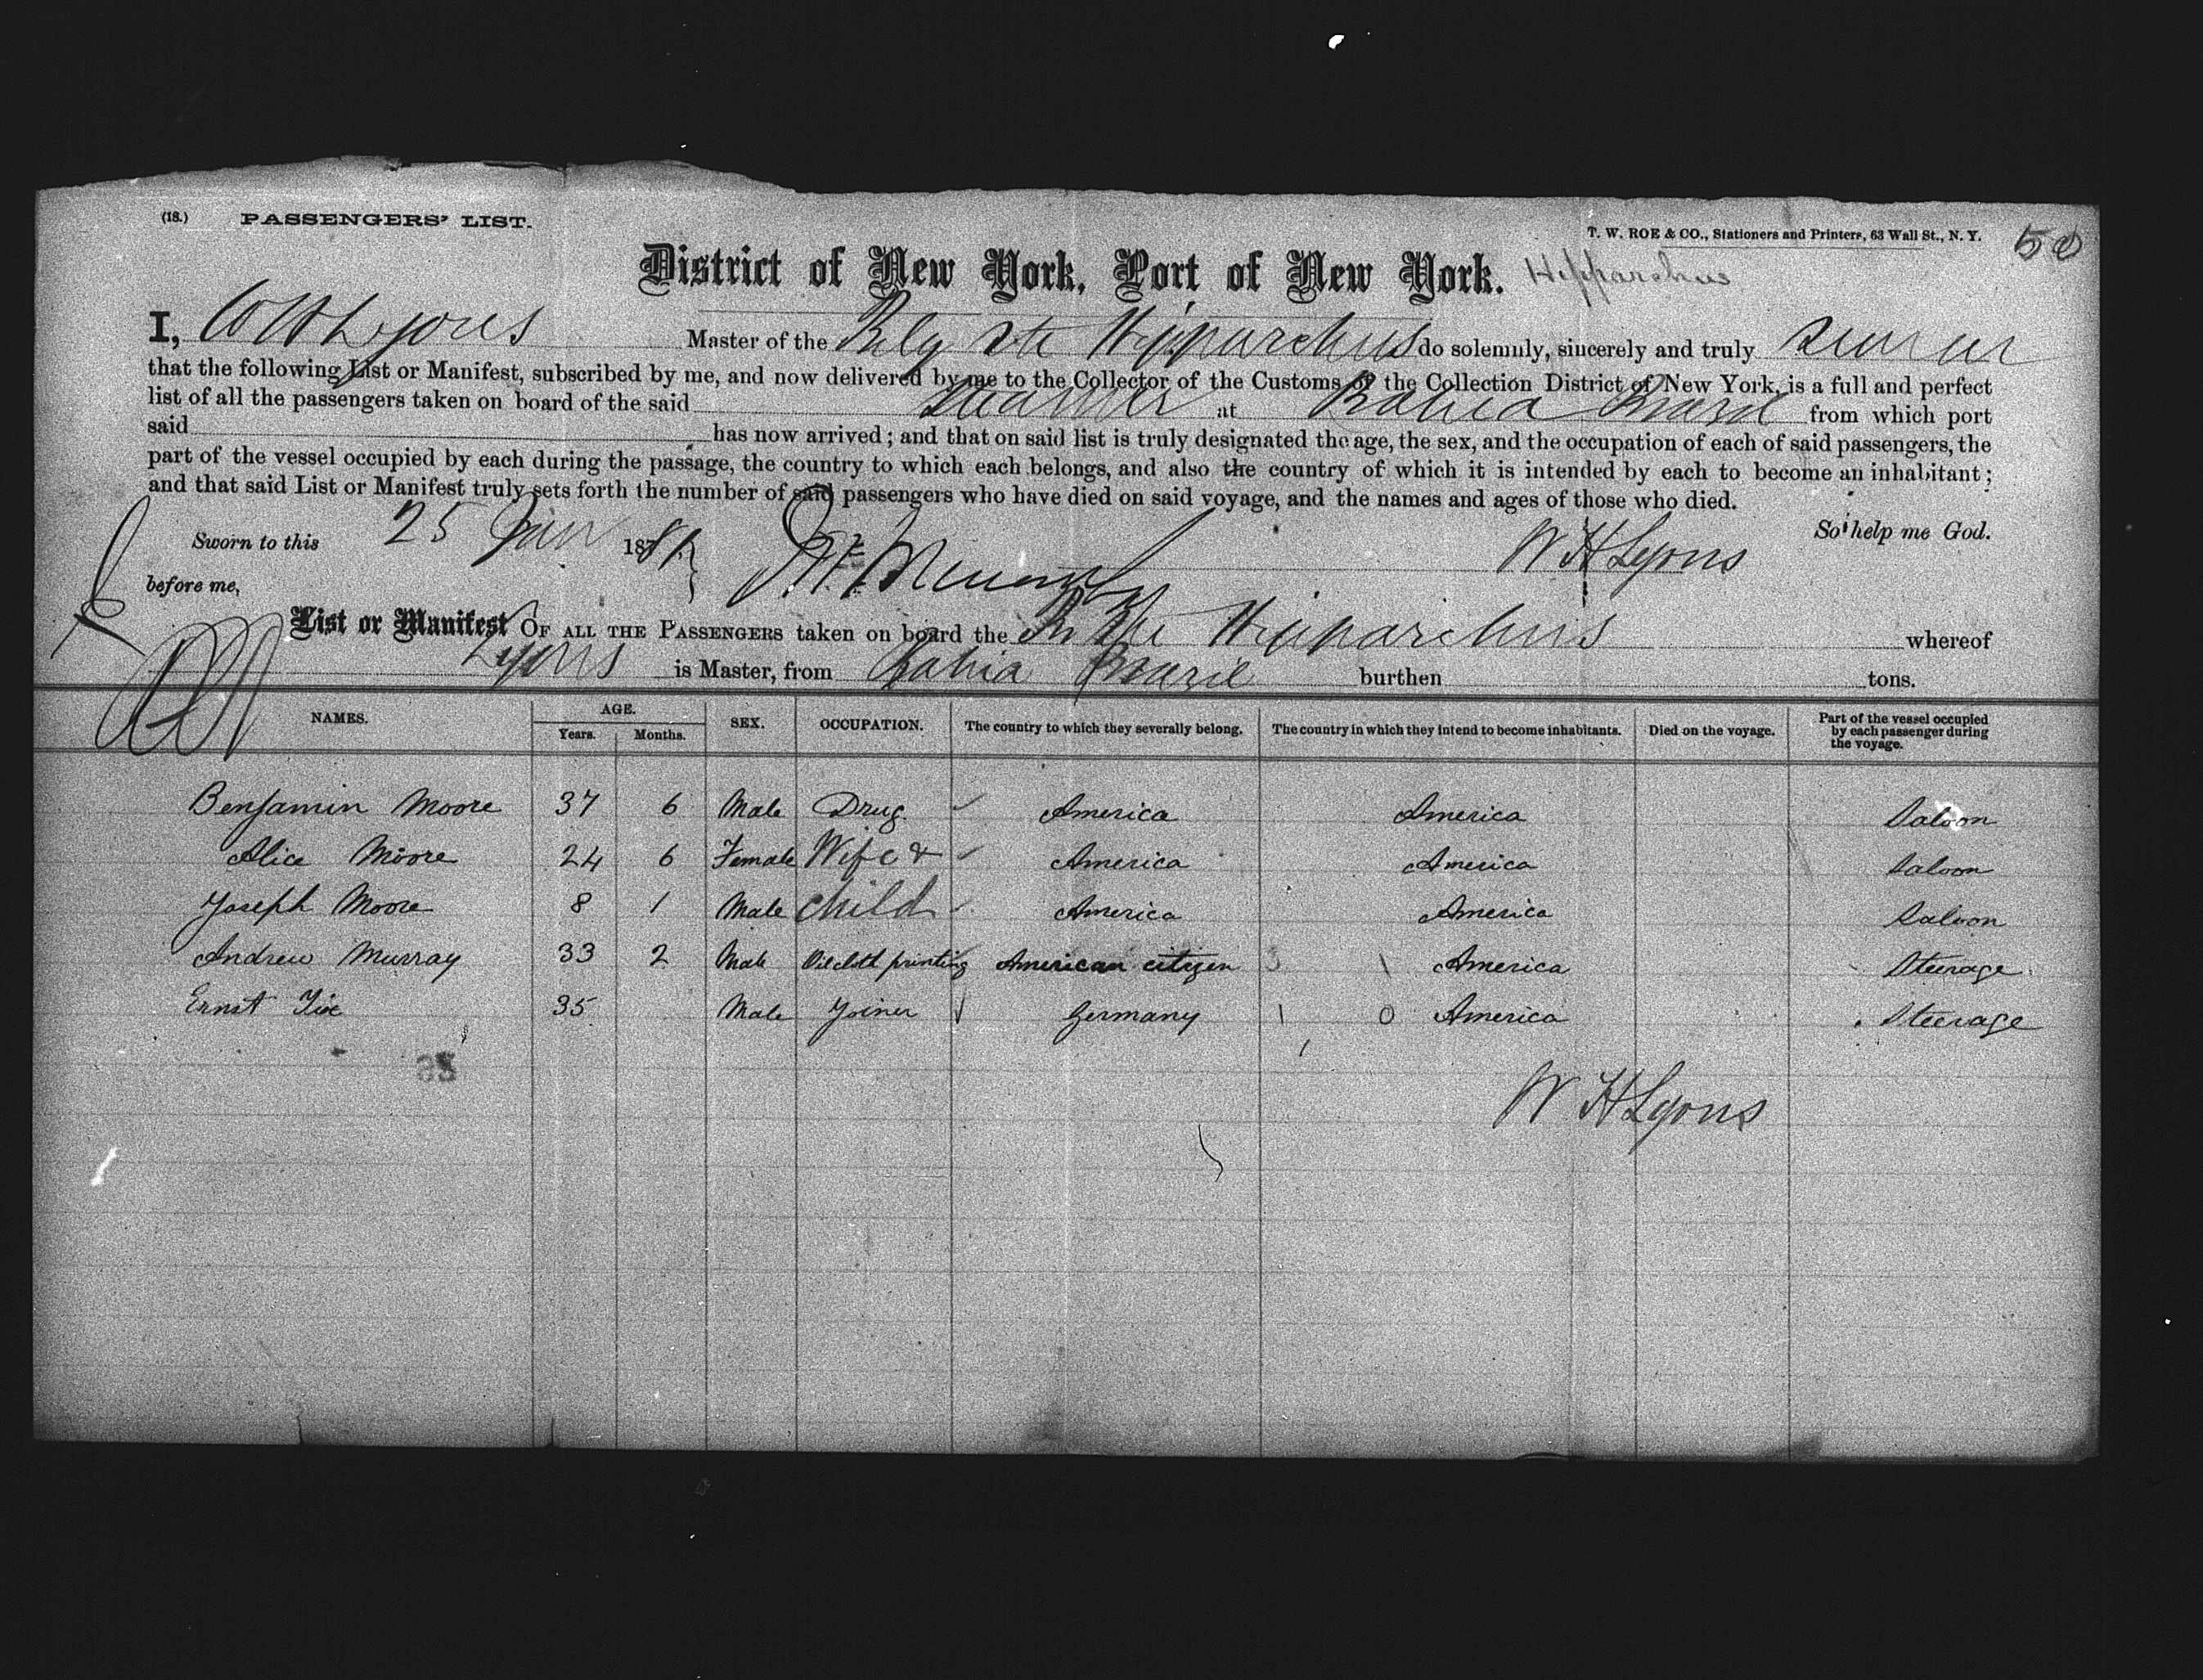 (18.) PASSENGERS' LIST.
T. W. ROE & CO., Stationers and Printers, 63 Wall St., N. Y. 50
District of New York, Port of New York. Hipparchus
I, W H Lyons Master of the Belg Str Hipparchus do solemnly, sincerely and truly swear
that the following List or Manifest, subscribed by me, and now delivered by me to the Collector of the Customs of the Collection District of New York, is a full and perfect
list of all the passengers taken on board of the said Steamer at Bahia Brazil from which port
said has now arrived; and that on said list is truly designated the age, the sex, and the occupation of each of said passengers, the
part of the vessel occupied by each during the passage, the country to which each belongs, and also the country of which it is intended by each to become an inhabitant;
and that said List or Manifest truly sets forth the number of said passengers who have died on said voyage, and the names and ages of those who died.
So help me God.
Sworn to this 25 Jan 1881 W H Lyons
before me,
List or Manifest OF ALL THE PASSENGERS taken on board the Hipparchus whereof
Lyons is Master, from Bahia Brazil burthen tons.
NAMES. AGE. Years. Months. SEX. OCCUPATION. The country to which they severally belong. The country in which they intend to become inhabitants. Died on the voyage. Part of the vessel occupied by each passenger during the voyage.
Benjamin Moore 37 6 Male Drug. America America Saloon
Alice Moore 24 6 Female Wife & America America Saloon
Joseph Moore 8 1 Male Child America America Saloon
Andrew Murray 33 2 Male Oilcloth printing American citizen America Steerage
Ernst 35 Male Joiner Germany 1 0 America Steerage
W H Lyons